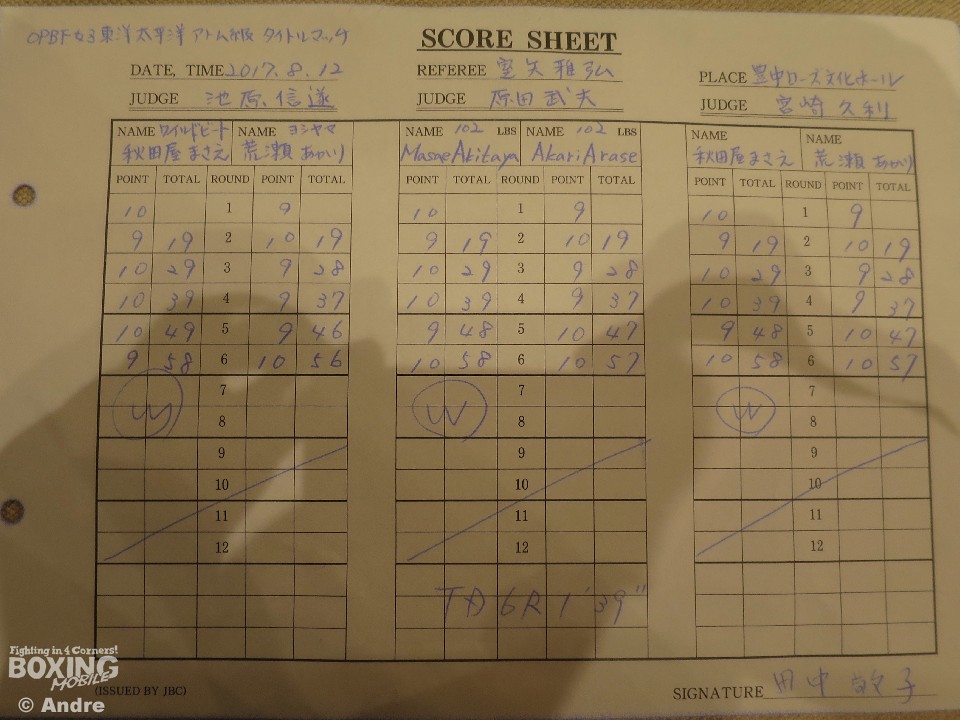 OPBF女子東洋太平洋アトム級 タイトルマッチ
SCORE SHEET
DATE, TIME 2017.8.12
REFEREE 室矢雅弘
PLACE 豊中ローズ文化ホール
JUDGE 池原信遂
JUDGE 原田武夫
JUDGE 宮崎久利
NAME ワイルドビート NAME ヨシヤマ
秋田屋まさえ 荒瀬あかり
POINT TOTAL ROUND POINT TOTAL
10 1 9
9 19 2 10 19
10 29 3 9 28
10 39 4 9 37
10 49 5 9 46
9 58 6 10 56
W 7
8
9
10
11
12
NAME 102 LBS NAME 102 LBS
Masae Akitaya Akari Arase
POINT TOTAL ROUND POINT TOTAL
10 1 9
9 19 2 10 19
10 29 3 9 28
10 39 4 9 37
9 48 5 10 47
10 58 6 10 57
W 7
8
9
10
11
12
TD 6R 1'39"
NAME NAME
秋田屋まさえ 荒瀬あかり
POINT TOTAL ROUND POINT TOTAL
10 1 9
9 19 2 10 19
10 29 3 9 28
10 39 4 9 37
9 48 5 10 47
10 58 6 10 57
W 7
8
9
10
11
12
(ISSUED BY JBC)
SIGNATURE 田中敏子
Fighting in 4 Corners!
BOXING
MOBILE
© Andre